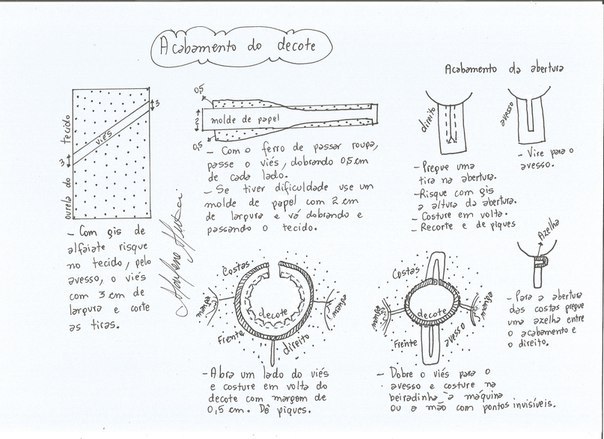 Acabamento do decote
Acabamento da abertura
ourela do tecido
viés
3
3
- Com gis de
alfaiate risque
no tecido, pelo
avesso, o viés
com 3 cm de
largura e corte
as tiras.
0,5
2
molde de papel
0,5
- Com o ferro de passar roupa,
passe o viés, dobrando 0,5 cm
de cada lado.
- Se tiver dificuldade use um
molde de papel com 2 cm
de largura e vá dobrando e
passando o tecido.
direito
- Pregue uma
tira na abertura.
- Risque com gis
a altura da abertura.
- Costure em volta.
- Recorte e dê piques
avesso
- Vire para o
avesso.
Costas
manga
decote
manga
Frente
direito
- Abra um lado do viés
e costure em volta do
decote com margem de
0,5 cm. Dê piques.
Costas
manga
decote
manga
Frente
avesso
- Dobre o viés para o
avesso e costure na
beiradinha à máquina
ou a mão com pontos invisíveis.
Azelha
- Para a abertura
das costas pregue
uma azelha entre
o acabamento e
o direito.